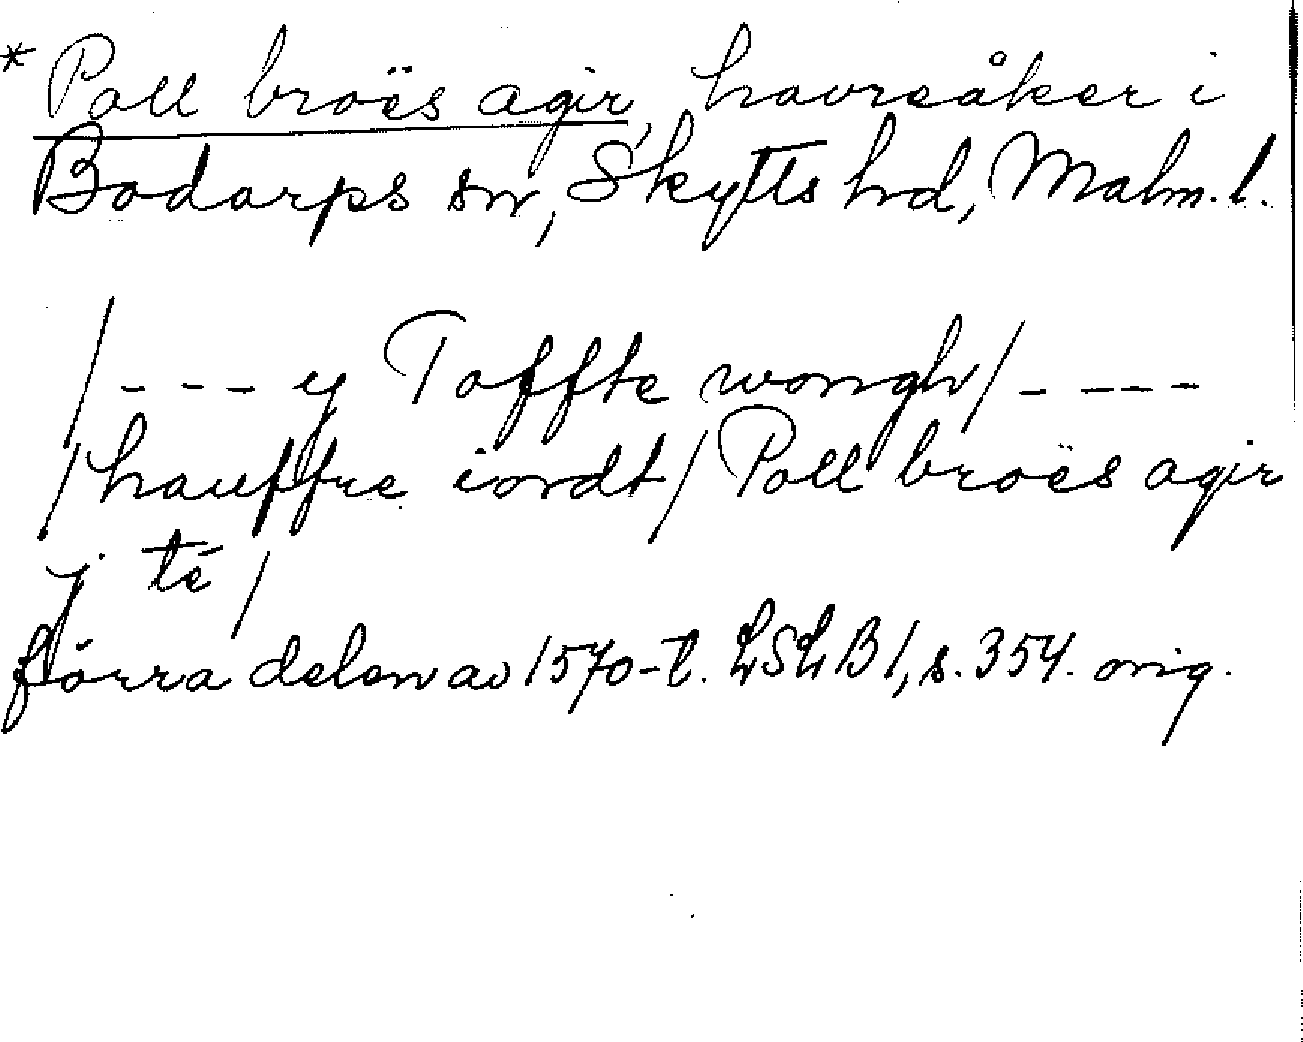 * Poll broës agir, havreåker i
Bodarps sn, Skytts hd, Malm. l.
/- - - y Toffte wongh/- - - -
/hauffre iordt/ Poll broës agir
j té /
förra delen av 1570-t. LSLB1, s. 354. orig.